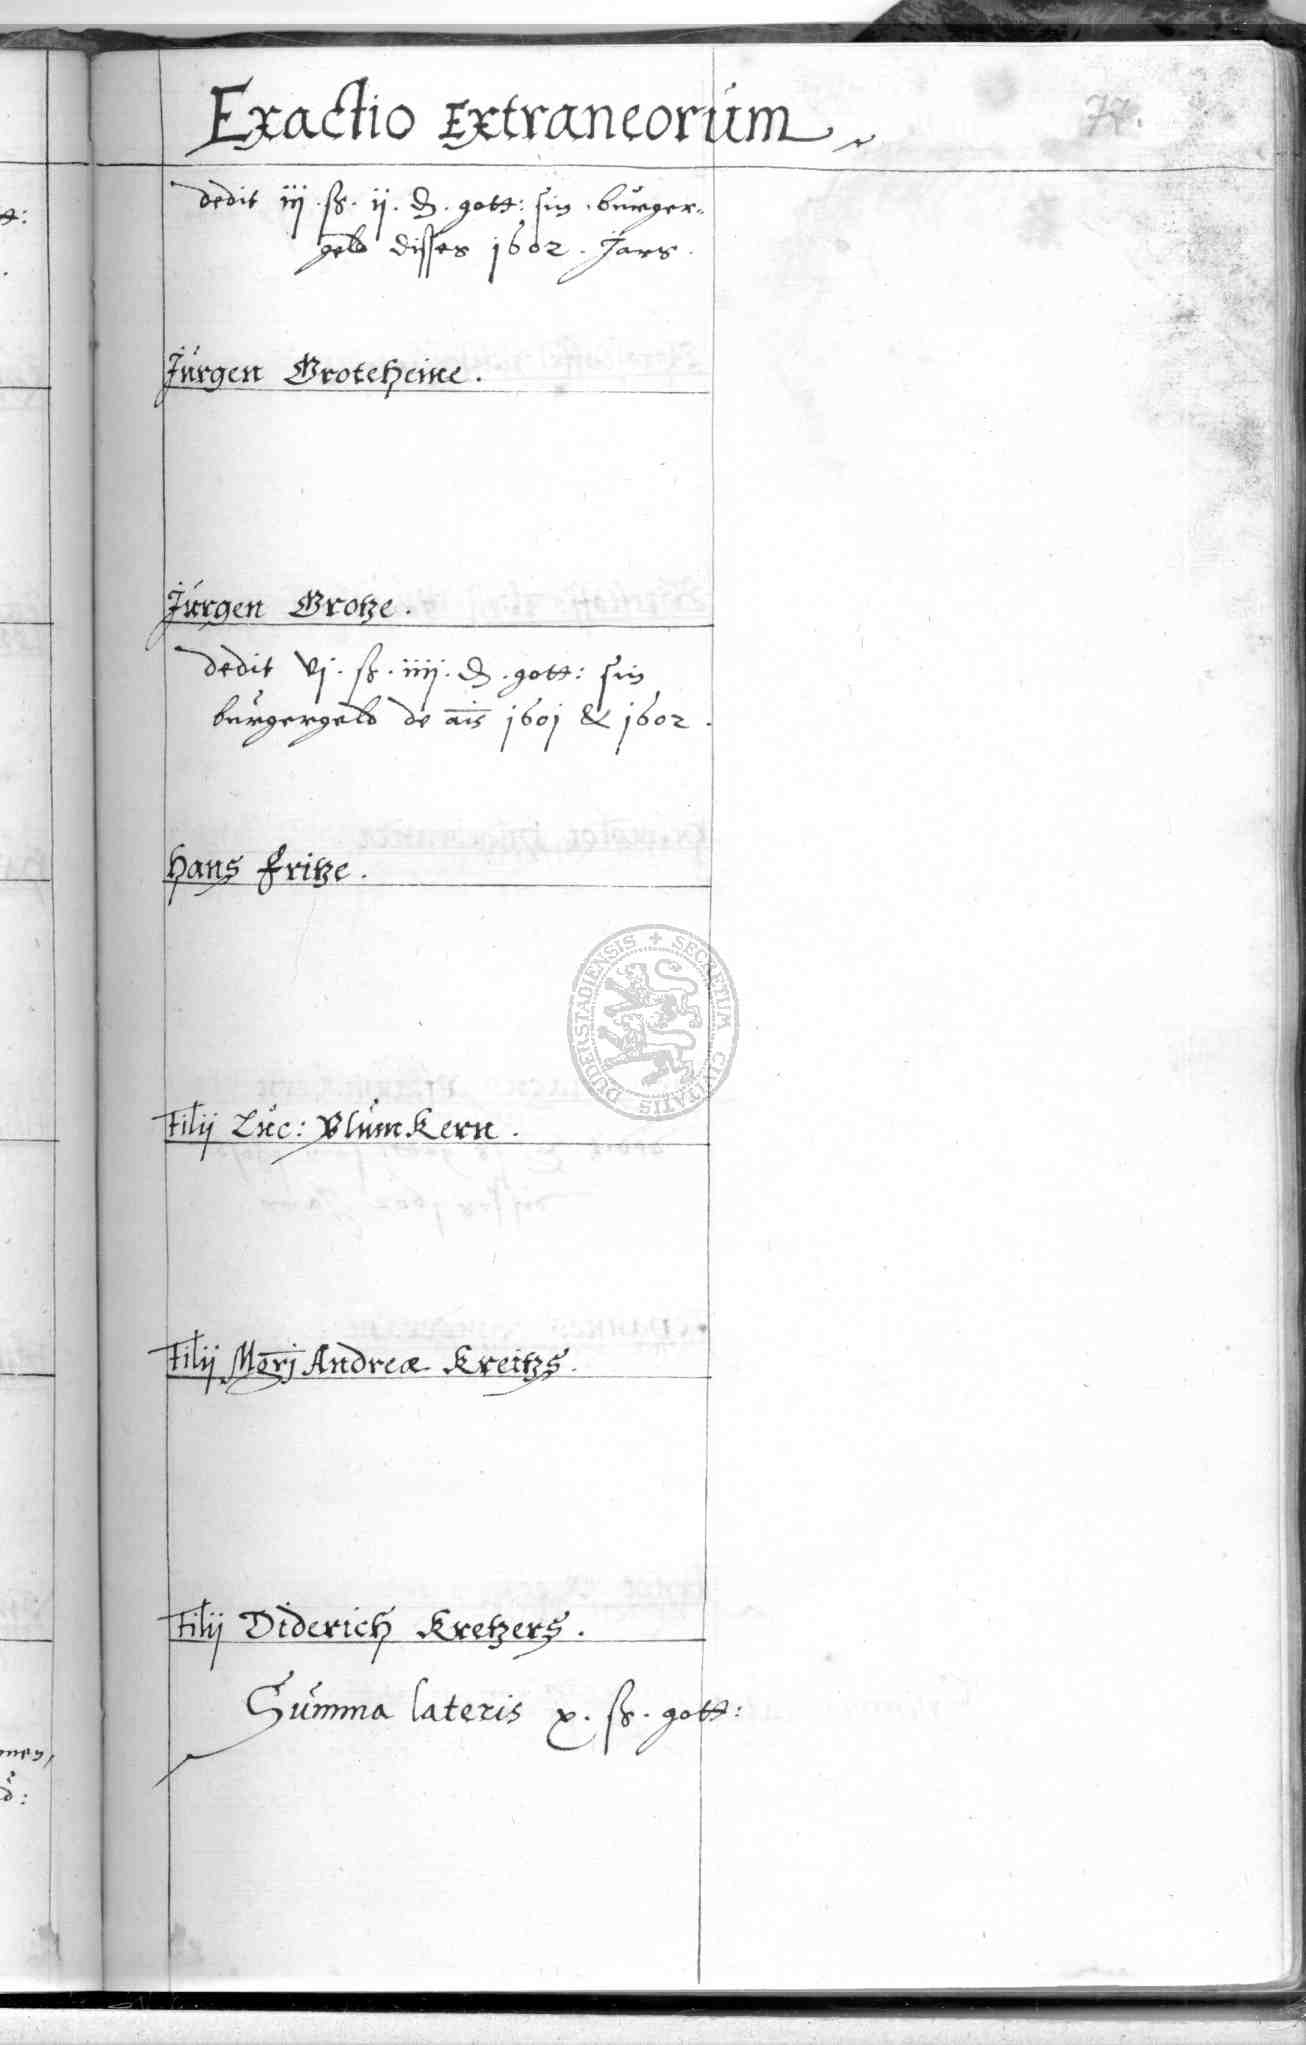 Exactio Extraneorum
77.
dedit iij. ß. ij. ₰. gott: sin bůrger=
geld disses 1602. Jars.
Jürgen Groteheine.
Jürgen Grotze.
dedit vj. ß. iiij. ₰. gott: sin
bůrgergeld de ais 1601 & 1602.
Hans Fritze.
Filij Luc: Blůmkern.
Filij Mgrj Andreæ Kreitzs.
Filij Diderich Kretzers.
Sůmma lateris x. ß. gott:
SECRETUM CIVITATIS DUDERSTADIENSIS